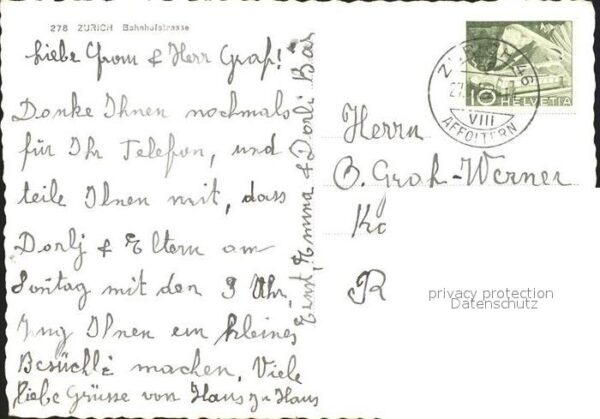 278 ZÜRICH Bahnhofstrasse
Liebe Frau & Herr Graf!
Danke Ihnen nochmals
für Ihr Telefon, und
teile Ihnen mit, dass
Dorlj & Eltern am
Sontag mit den 3 Uhr,
Zug Ihnen ein kleines
Besüchli machen, Viele
liebe Grüsse von Haus zu Haus
Ernst, Emma & Dorli Bär
HELVETIA
10
VIII
AFFOLTERN
Herrn
O. Graf-Werner
privacy protection
Datenschutz